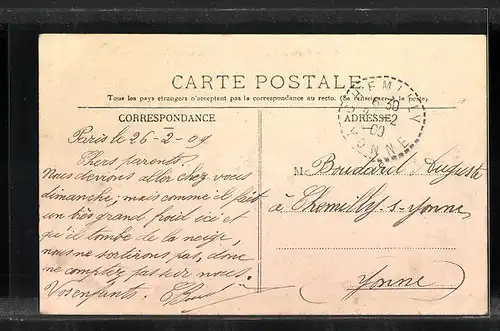 CARTE POSTALE
Tous les pays étrangers n'acceptent pas la correspondance au recto. (Se renseigner à la poste)
CORRESPONDANCE
ADRESSE
CHEMILLY
6 30
2
09
YONNE
Paris le 26-2-09
Chers parents.
Nous devions aller chez vous
dimanche; mais comme il fait
un très grand froid ici et
qu'il tombe de la neige,
nous ne sortirons pas, donc
ne comptez pas sur nous.
Vos enfants.
M Boudard Auguste
à Chemilly-s-Yonne
Yonne